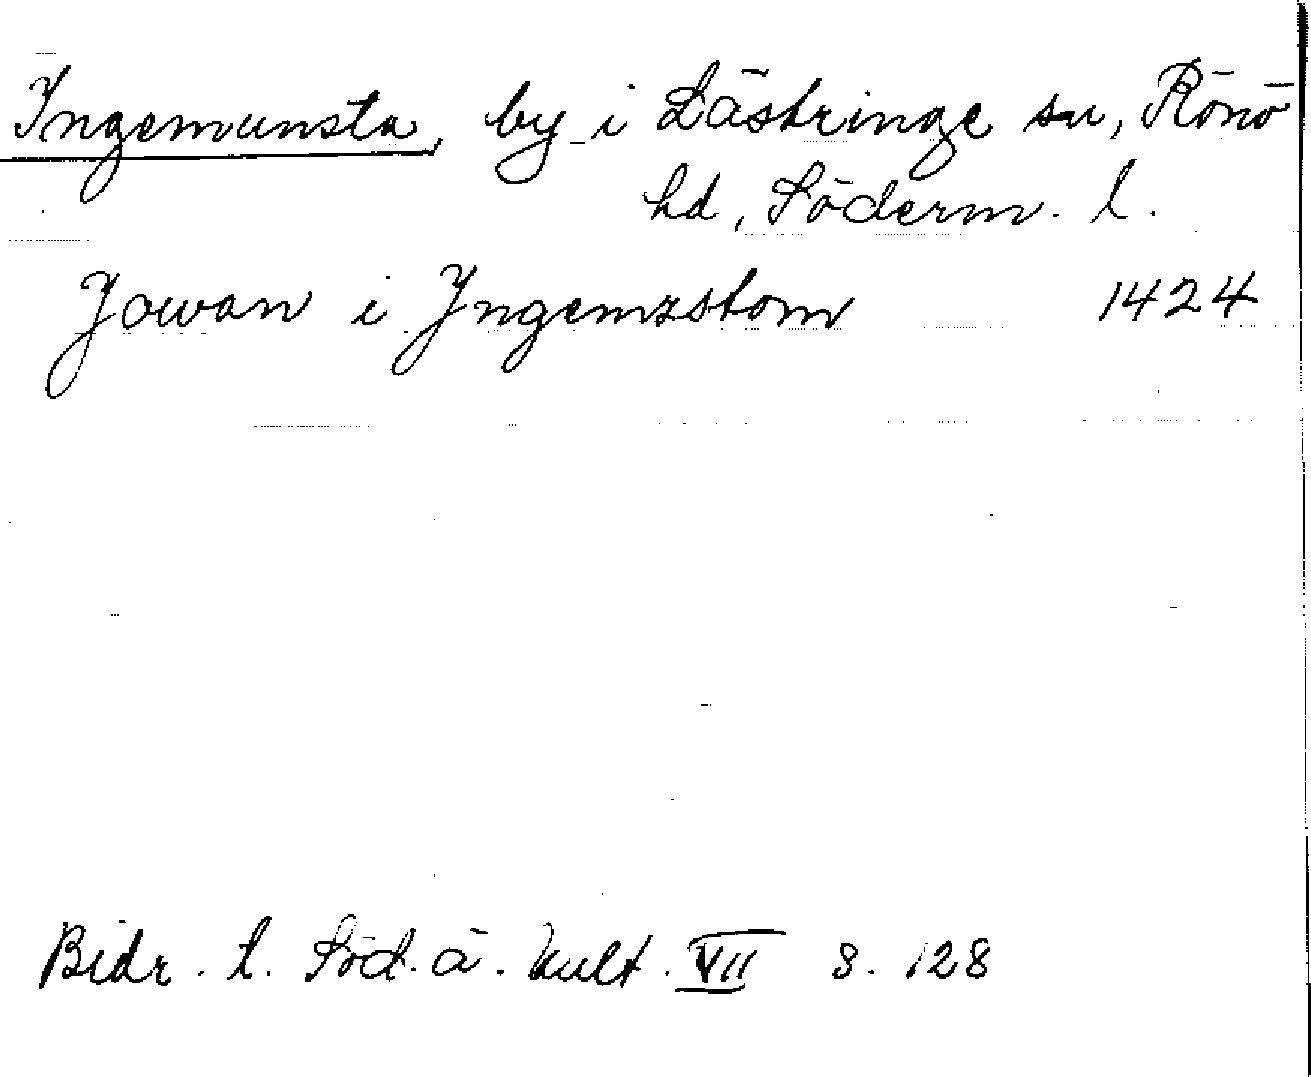 Ingemunsta, by i Lästringe sn, Rönö
hd, Söderm. l.
Jowan i Yngemzstom 1424
Bidr. t. Söd. ä. kult. VII s. 128